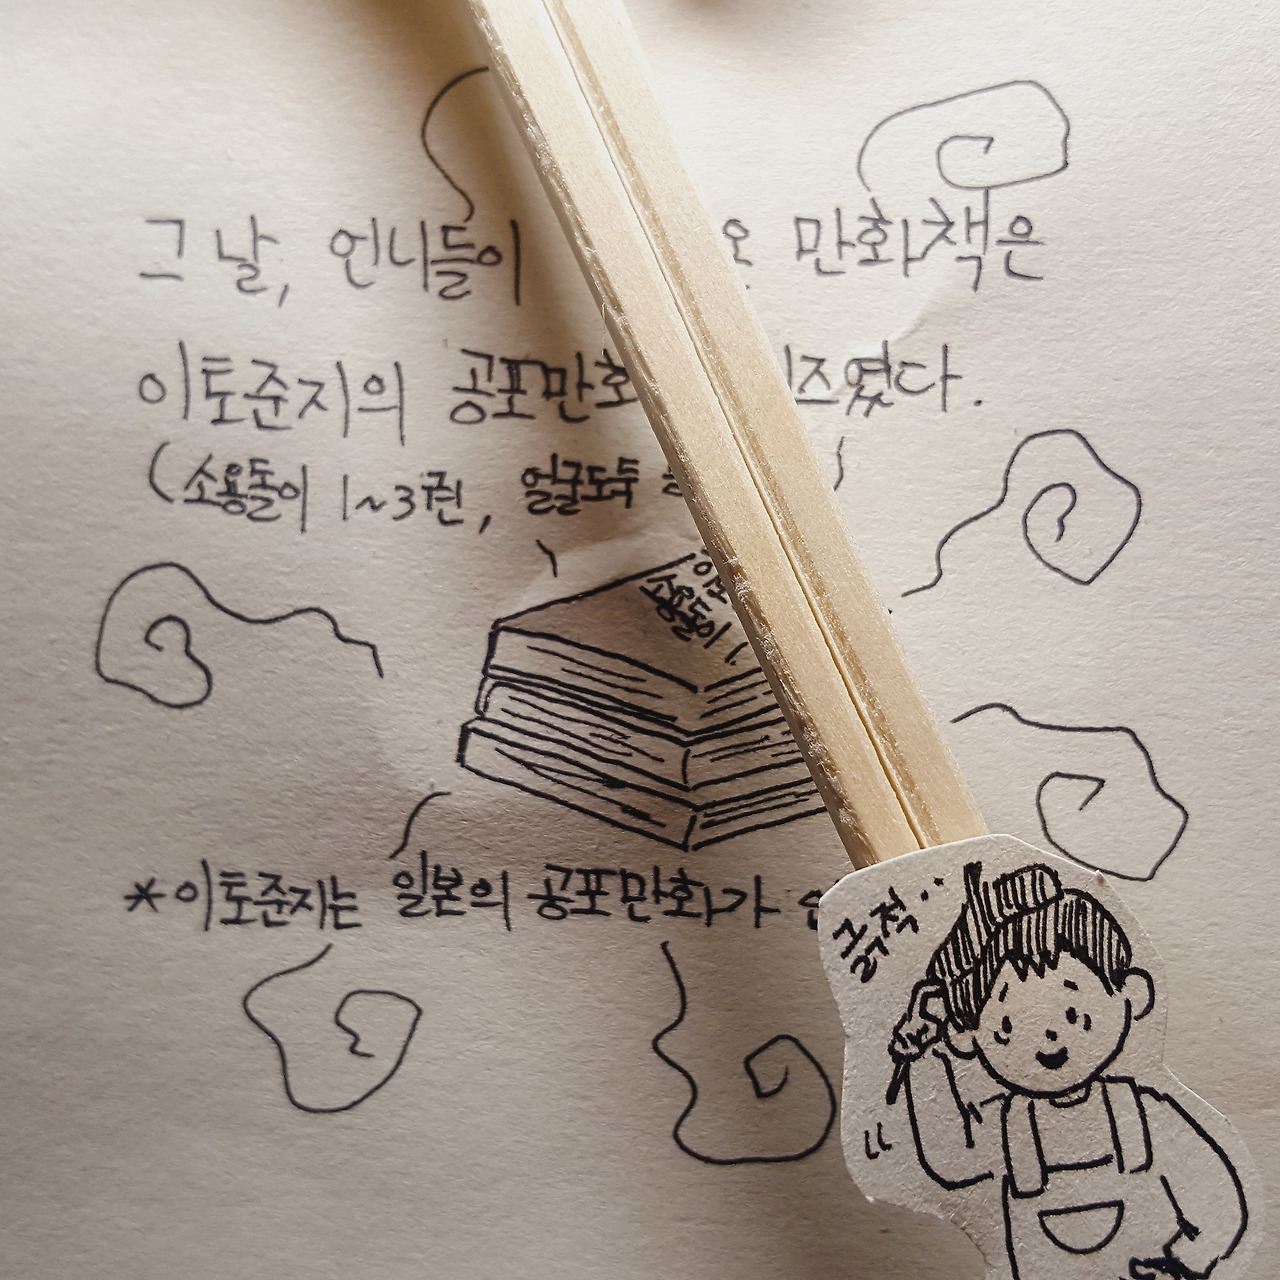 그 날, 언니들이 만화책은
이토준지의 공포만화
(소용돌이 1~3권, 얼굴도둑
소용돌이 1.
*이토준지는 일본의 공포만화가
긁적..